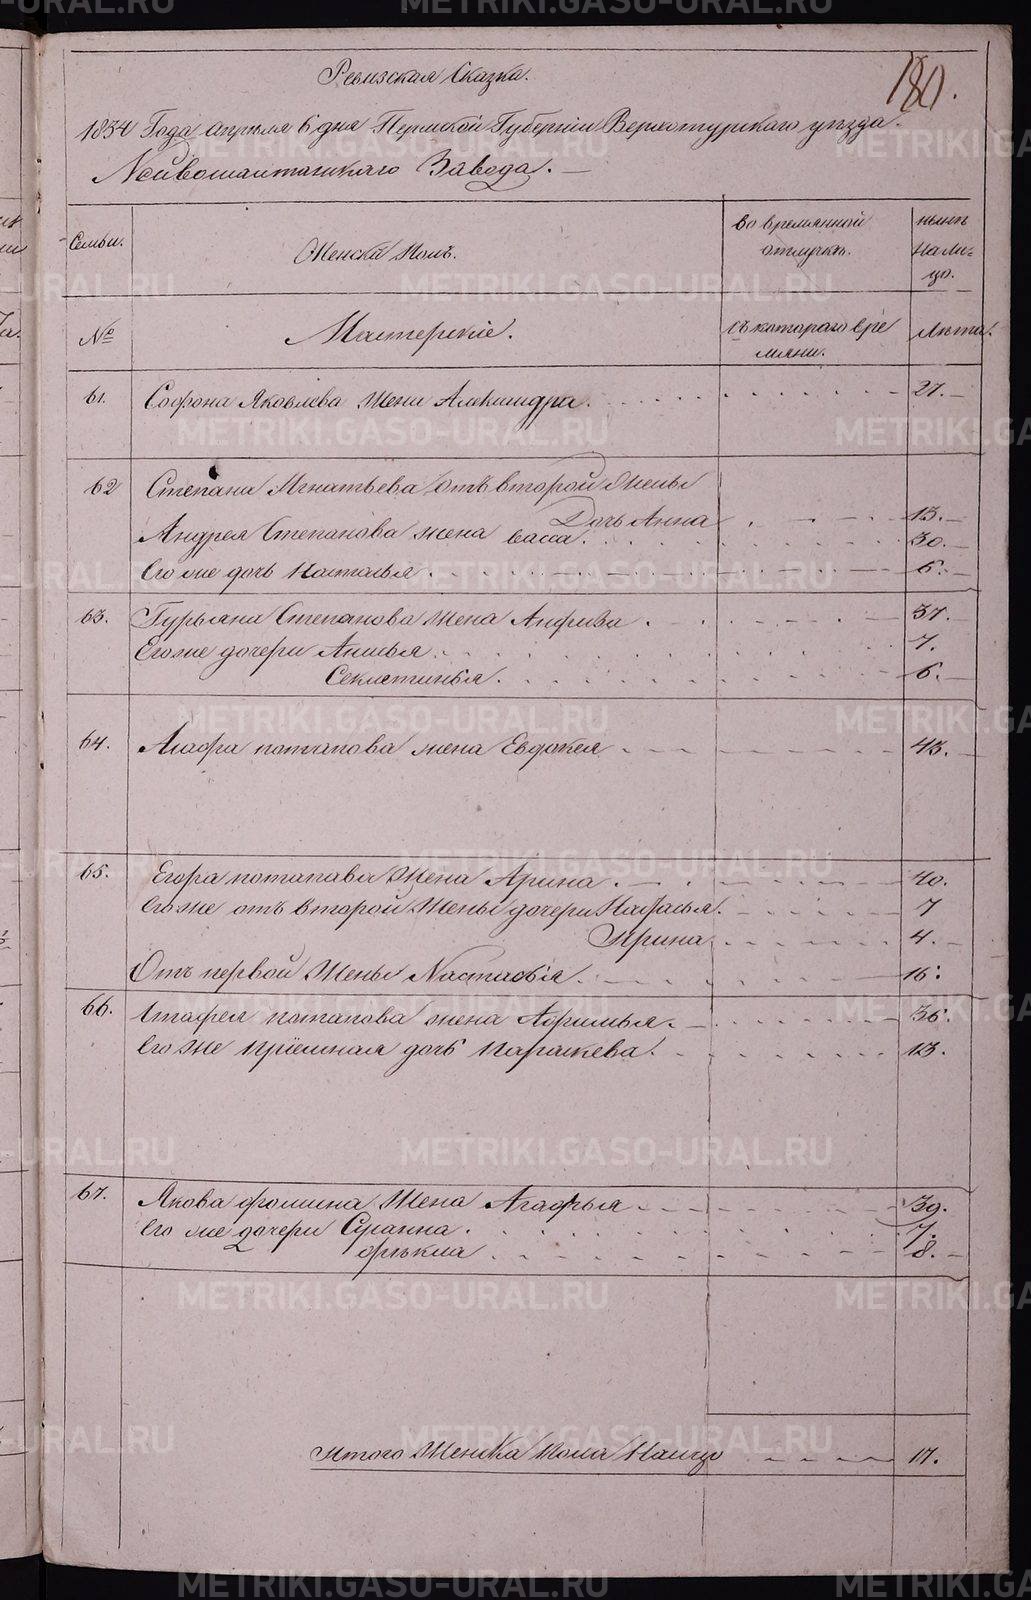 180.
Ревизская Сказка.
1834 Года апреля 6 дня Пермской Губернии Верхотурскаго уезда
Нейвошайтанскаго Завода.
Семьи.
Женска Полъ.
во времянной
отлучке.
ныне
нали-
цо.
№
Мастерские.
съ котораго вре
мяни.
Лета.
61.
Софона Яковлева жена Александра.
27.
62
Степана Игнатьева отъ второй жены
Дочь Анна
13.
Андрея Степанова жена васса.
30.
Его же дочь Наталья.
6.
63.
Гурьяна Степанова жена Анфиса.
37.
Его же дочери Анисья.
7.
Секлетинья.
6.
64.
Агафа потапова жена Евдокея
43.
65.
Егора потапава Жена Арина.
40.
Его же отъ второй Жены дочери
7
Ирина
4.
Отъ первой Жены Настасiя.
16.
66.
потапова жена Афимья.
36.
Его же прiемная дочь параскева.
13.
67.
Якова фомина Жена Агафья
39.
Его же дочери
7.
фёкла
8.
Итого Женска пола Налицо
17.
METRIKI.GASO-URAL.RU